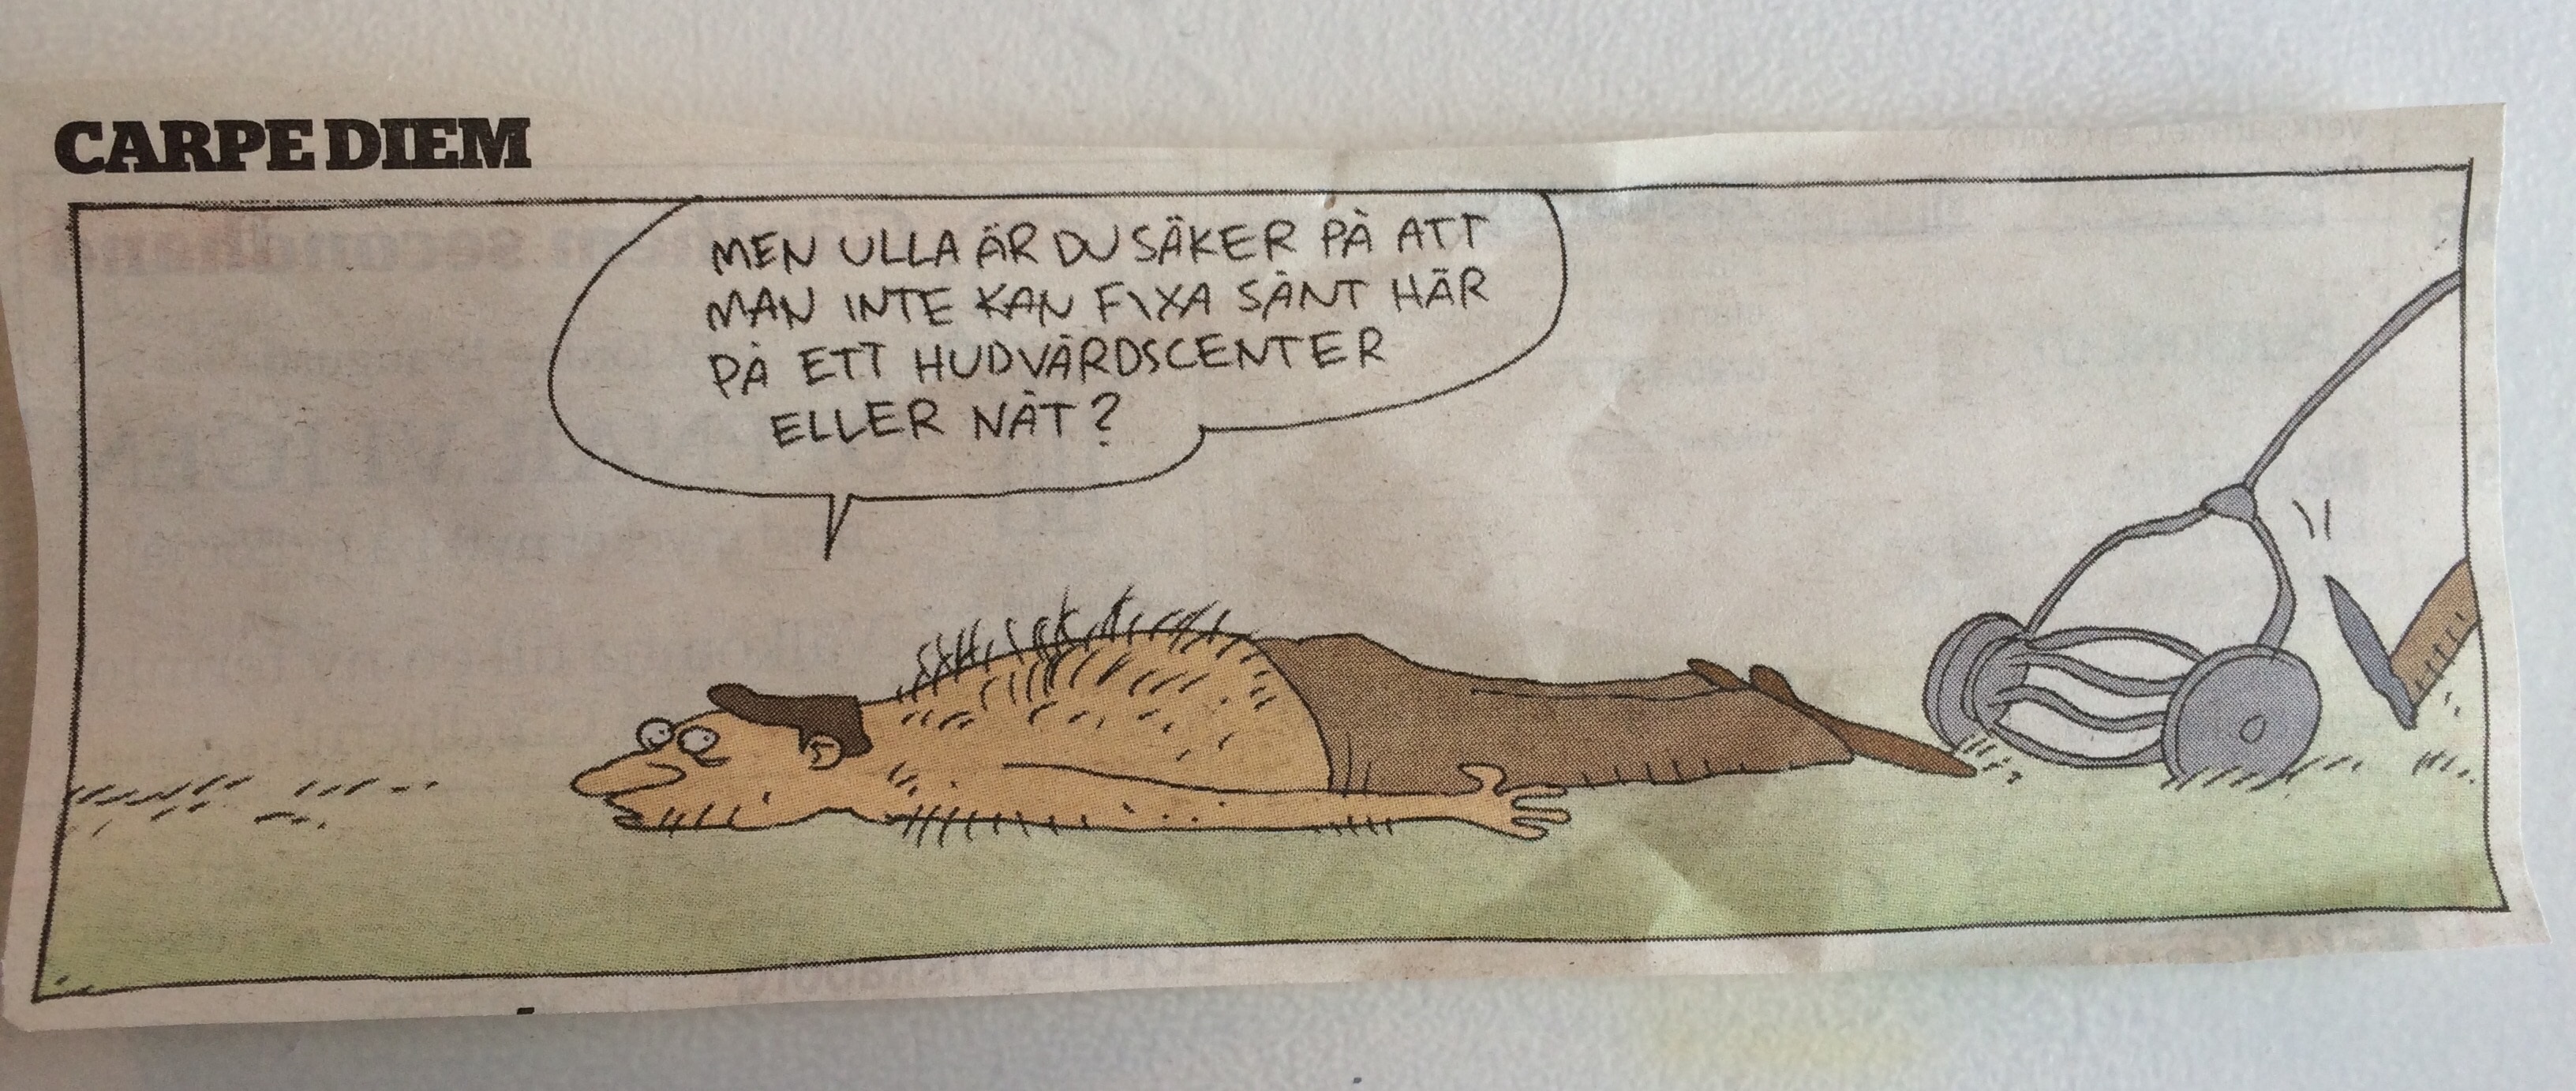 CARPE DIEM
MEN ULLA ÄR DU SÄKER PÅ ATT
MAN INTE KAN FIXA SÅNT HÄR
PÅ ETT HUDVÅRDSCENTER
ELLER NÅT?